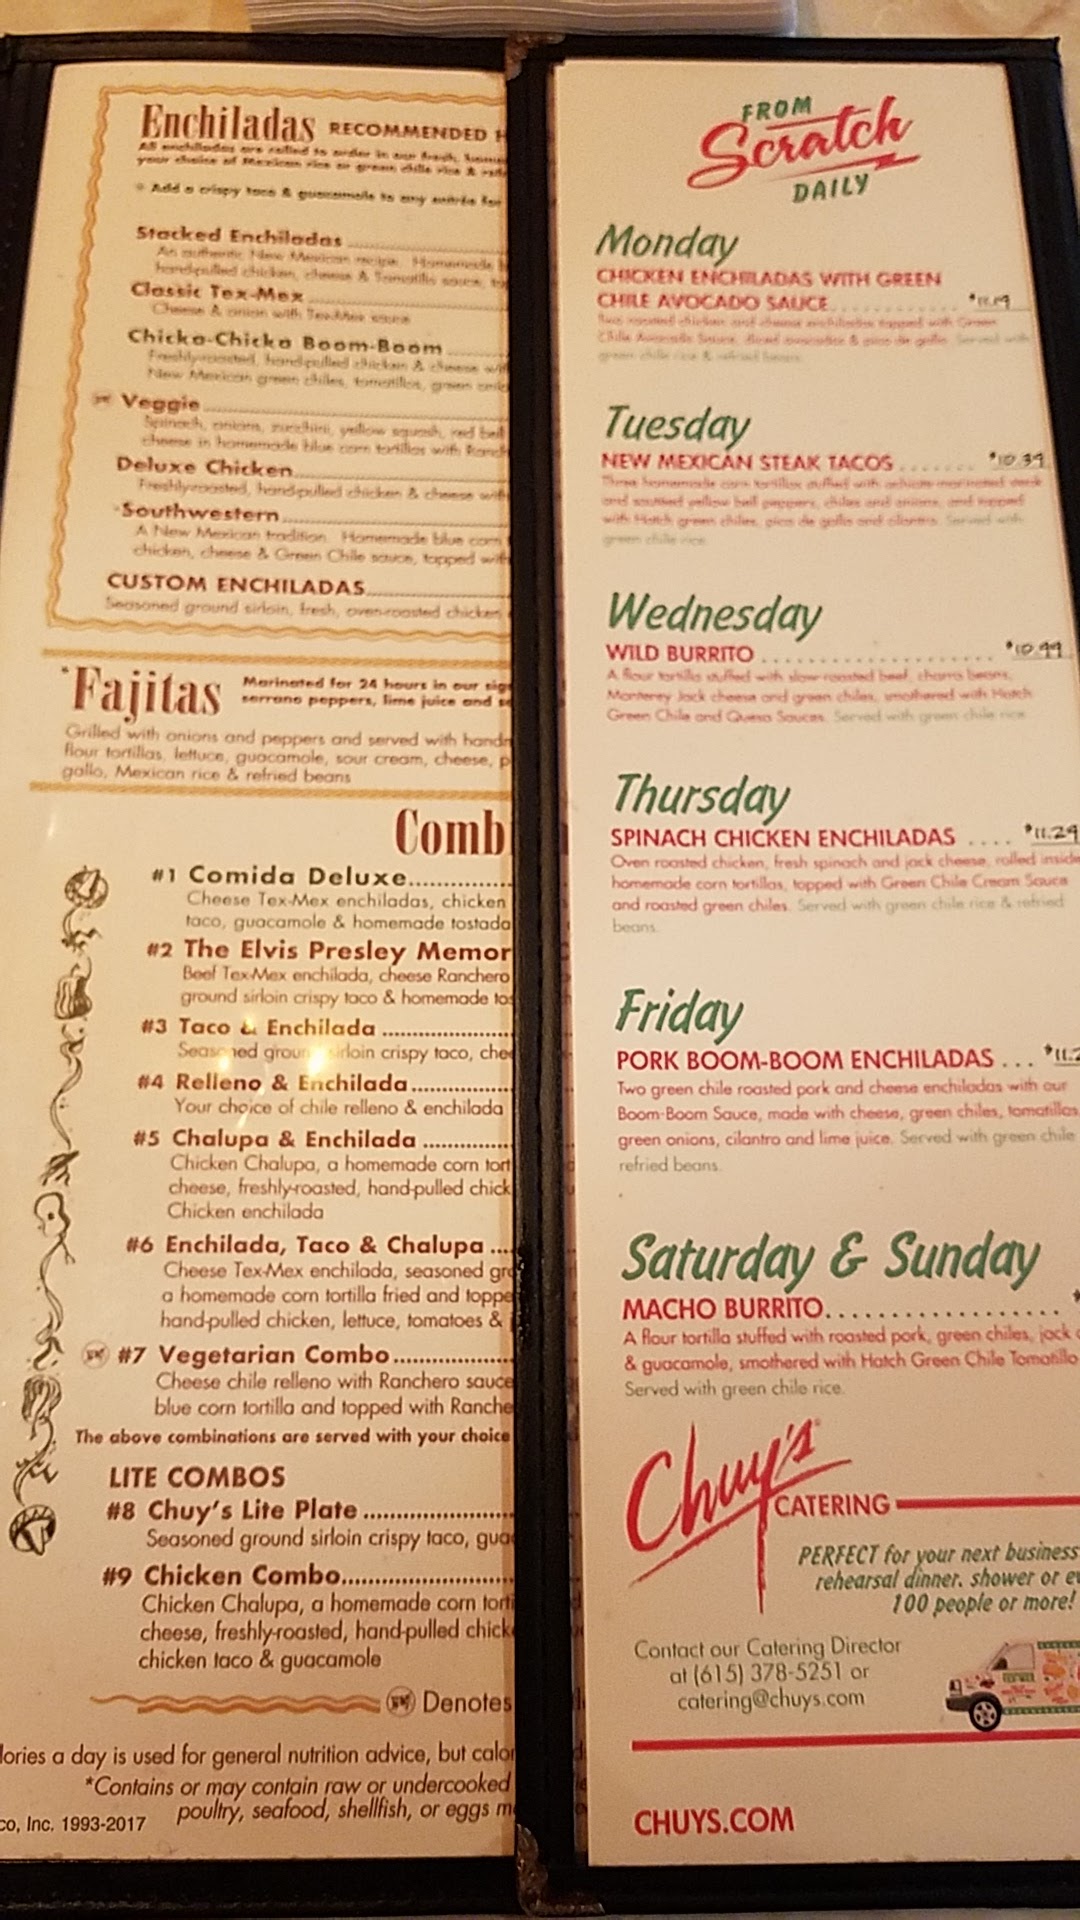 Enchiladas RECOMMENDED
All enchiladas are rolled to order in our fresh,
your choice of Mexican rice or green chile rice &
Add a crispy taco & guacamole to any entrée for
Stacked Enchiladas
An authentic New Mexican recipe. Homemade
hand-pulled chicken, cheese & Tomatillo sauce,
Classic Tex-Mex
Cheese & onion with Tex-Mex sauce
Chicka-Chicka Boom-Boom
Freshly-roasted, hand-pulled chicken & cheese
New Mexican green chiles, tomatillos, green
Veggie
Spinach, onions, zucchini, yellow squash, red bell
cheese in homemade blue corn tortillas with
Deluxe Chicken
Freshly-roasted, hand-pulled chicken & cheese
*Southwestern
A New Mexican tradition. Homemade blue corn
chicken, cheese & Green Chile sauce, topped
CUSTOM ENCHILADAS
Seasoned ground sirloin, fresh, oven-roasted chicken
*Fajitas Marinated for 24 hours in our
serrano peppers, lime juice and
Grilled with onions and peppers and served with
flour tortillas, lettuce, guacamole, sour cream, cheese, p
gallo, Mexican rice & refried beans
Comb
#1 Comida Deluxe
Cheese Tex-Mex enchiladas, chicken
taco, guacamole & homemade tostada
#2 The Elvis Presley Memor
Beef Tex-Mex enchilada, cheese Ranchero
ground sirloin crispy taco & homemade
#3 Taco & Enchilada
Seasoned ground sirloin crispy taco,
#4 Relleno & Enchilada
Your choice of chile relleno & enchilada
#5 Chalupa & Enchilada
Chicken Chalupa, a homemade corn tort
cheese, freshly-roasted, hand-pulled chick
Chicken enchilada
#6 Enchilada, Taco & Chalupa
Cheese Tex-Mex enchilada, seasoned gro
a homemade corn tortilla fried and toppe
hand-pulled chicken, lettuce, tomatoes &
#7 Vegetarian Combo
Cheese chile relleno with Ranchero sauce
blue corn tortilla and topped with Ranche
The above combinations are served with your choice
LITE COMBOS
#8 Chuy's Lite Plate
Seasoned ground sirloin crispy taco, gua
#9 Chicken Combo
Chicken Chalupa, a homemade corn torti
cheese, freshly-roasted, hand-pulled chick
chicken taco & guacamole
Denotes
lories a day is used for general nutrition advice, but calor
*Contains or may contain raw or undercooked
poultry, seafood, shellfish, or eggs m
co, Inc. 1993-2017
FROM
Scratch
DAILY
Monday
CHICKEN ENCHILADAS WITH GREEN
CHILE AVOCADO SAUCE $11.19
Two roasted chicken and cheese enchiladas topped with Green
Chile Avocado Sauce, diced avocados & pico de gallo. Served with
green chile rice & refried beans.
Tuesday
NEW MEXICAN STEAK TACOS $10.39
Three homemade corn tortillas stuffed with achiote-marinated steak
and sautéed yellow bell peppers, chiles and onions, and topped
with Hatch green chiles, pico de gallo and cilantro. Served with
green chile rice.
Wednesday
WILD BURRITO $10.99
A flour tortilla stuffed with slow-roasted beef, charro beans,
Monterey Jack cheese and green chiles, smothered with Hatch
Green Chile and Queso Sauces. Served with green chile rice.
Thursday
SPINACH CHICKEN ENCHILADAS $11.29
Oven roasted chicken, fresh spinach and jack cheese, rolled inside
homemade corn tortillas, topped with Green Chile Cream Sauce
and roasted green chiles. Served with green chile rice & refried
beans.
Friday
PORK BOOM-BOOM ENCHILADAS $11.2
Two green chile roasted pork and cheese enchiladas with our
Boom-Boom Sauce, made with cheese, green chiles, tomatillos,
green onions, cilantro and lime juice. Served with green chile
refried beans.
Saturday & Sunday
MACHO BURRITO
A flour tortilla stuffed with roasted pork, green chiles, jack
& guacamole, smothered with Hatch Green Chile Tomatillo
Served with green chile rice.
Chuy's
CATERING
PERFECT for your next business
rehearsal dinner, shower or e
100 people or more!
Contact our Catering Director
at (615) 378-5251 or
catering@chuys.com
CHUYS.COM